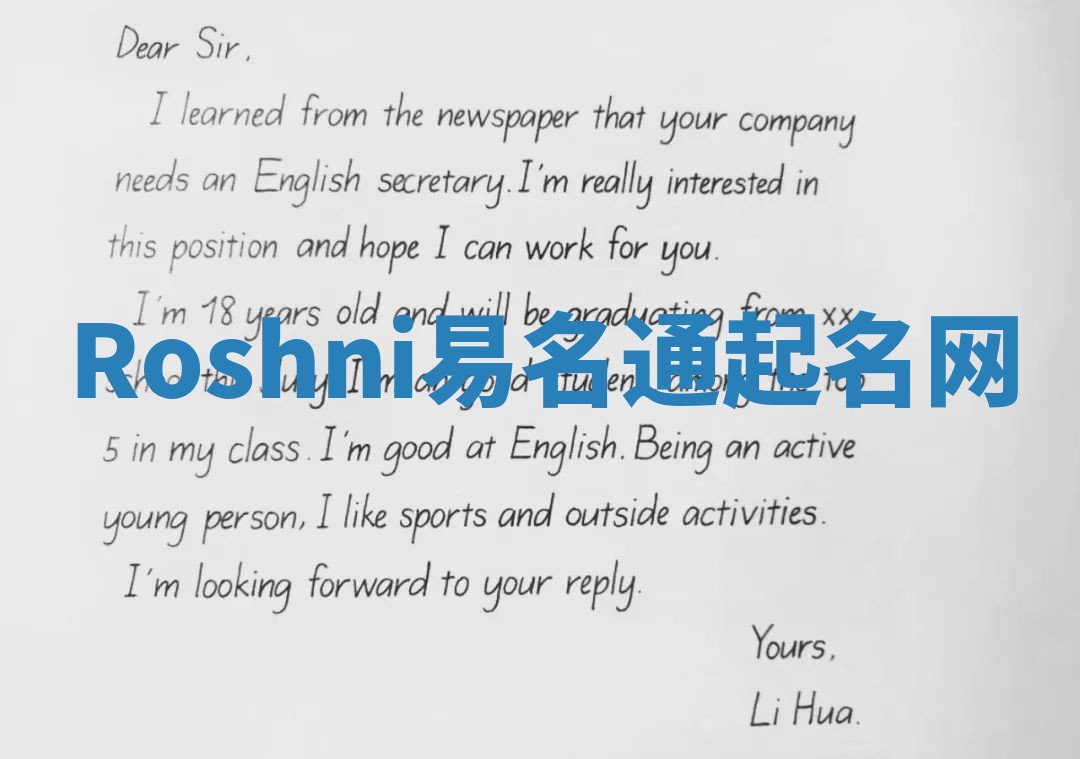 Dear Sir,
I learned from the newspaper that your company
needs an English secretary. I'm really interested in
this position and hope I can work for you.
I'm 18 years old and will be graduating from xx
Roshni易名通起名网
this July. I'm a good student among the top
5 in my class. I'm good at English. Being an active
young person, I like sports and outside activities.
I'm looking forward to your reply.
Yours,
Li Hua.